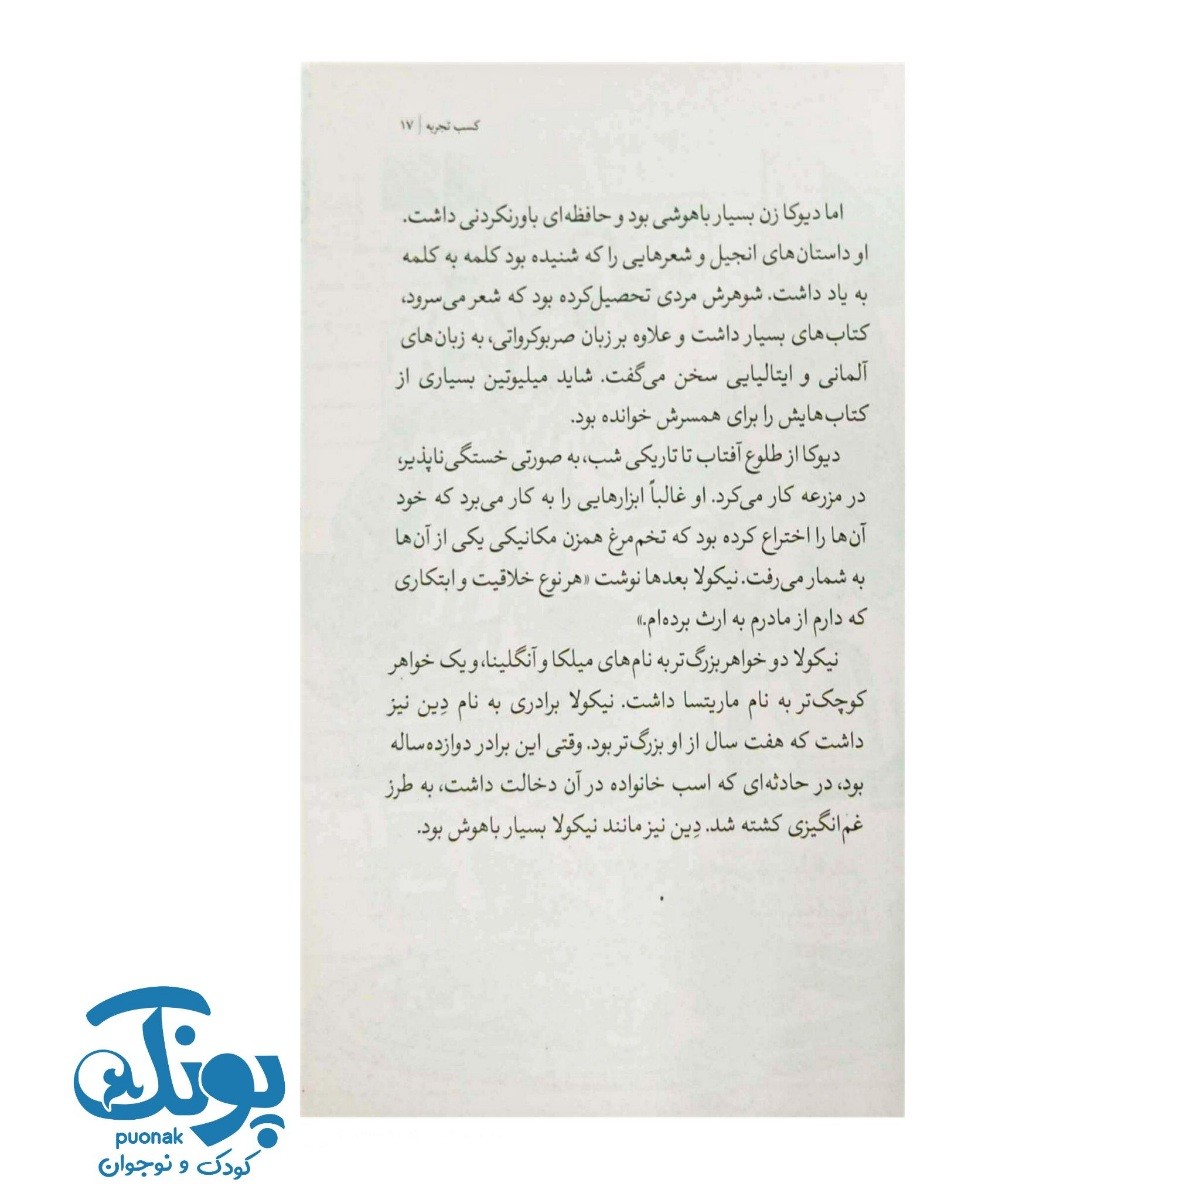 کسب تجربه | ۱۷
اما دیوکا زن بسیار باهوشی بود و حافظه‌ای باورنکردنی داشت.
او داستان‌های انجیل و شعرهایی را که شنیده بود کلمه به کلمه
به یاد داشت. شوهرش مردی تحصیل‌کرده بود که شعر می‌سرود،
کتاب‌های بسیار داشت و علاوه بر زبان صربوکرواتی، به زبان‌های
آلمانی و ایتالیایی سخن می‌گفت. شاید میلیوتین بسیاری از
کتاب‌هایش را برای همسرش خوانده بود.
دیوکا از طلوع آفتاب تا تاریکی شب، به صورتی خستگی‌ناپذیر،
در مزرعه کار می‌کرد. او غالباً ابزارهایی را به کار می‌برد که خود
آن‌ها را اختراع کرده بود که تخم‌مرغ همزن مکانیکی یکی از آن‌ها
به شمار می‌رفت. نیکولا بعدها نوشت «هر نوع خلاقیت و ابتکاری
که دارم از مادرم به ارث برده‌ام.»
نیکولا دو خواهر بزرگ‌تر به نام‌های میلکا و آنگلینا، و یک خواهر
کوچک‌تر به نام ماریتسا داشت. نیکولا برادری به نام دِین نیز
داشت که هفت سال از او بزرگ‌تر بود. وقتی این برادر دوازده‌ساله
بود، در حادثه‌ای که اسب خانواده در آن دخالت داشت، به طرز
غم‌انگیزی کشته شد. دِین نیز مانند نیکولا بسیار باهوش بود.
پونک
puonak
کودک و نوجوان